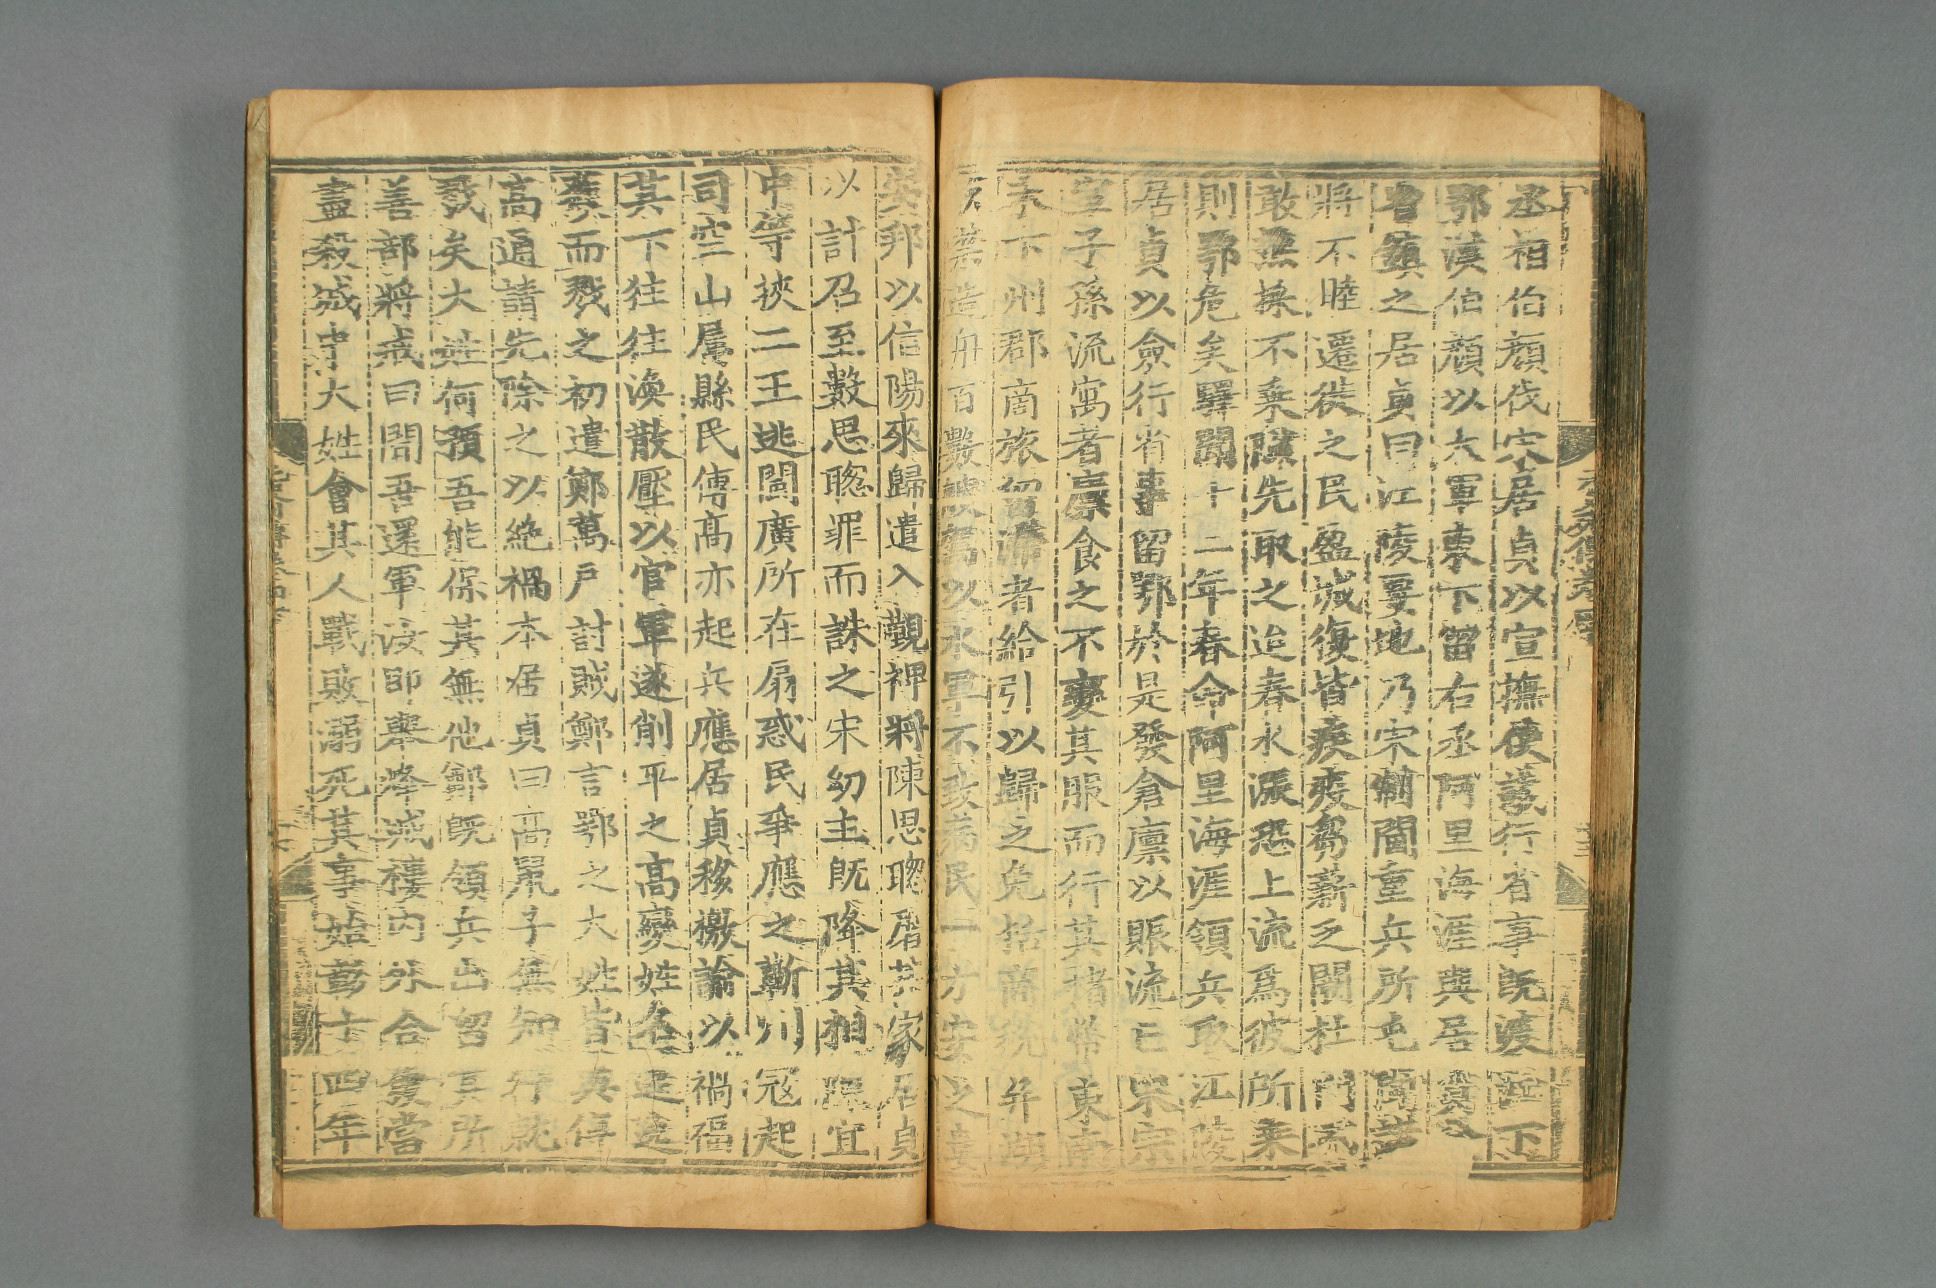 丞相伯顏伐宋居貞以宣撫使議行省事既渡江下
鄂漢伯顏以大軍東下留右丞阿里海涯與居貞分
省鎮之居貞曰江陵要地乃宋制閫重兵所屯聞諸
將不睦遷徙之民盈城復皆疾疫芻薪乏闕杜門不
敢樵採不乘隙先取之迨春水漲恐上流爲彼所乘
則鄂危矣驛聞十二年春命阿里海涯領兵取江陵
居貞以僉行省事留鄂於是發倉廩以賑流亡宋宗
室子孫流寓者廩食之不變其服而行其楮幣東南
未下州郡商旅留滯者給引以歸之免括商稅并湖
荻禁造舟百數艘駕以水軍不致病民一方安之婁
安邦以信陽來歸遣入覲裨將陳思聰屠其家居貞
以計召至數思聰罪而誅之宋幼主既降其相陳宜
中等挾二王逃閩廣所在扇惑民爭應之蘄州冦起
司空山屬縣民傅高亦起兵應居貞移檄諭以禍福
其下往往渙散壓以官軍遂削平之高變姓名逃逸
獲而戮之初遣鄭萬戶討賊鄭言鄂之大姓皆與傅
高通請先除之以絶禍本居貞曰高鼠子無知行就
戮矣大姓何預吾能保其無他鄭既領兵出留其所
善部將戒曰聞吾還軍汝即舉烽城樓內外合發當
盡殺城中大姓會其人戰敗溺死其事始露十四年